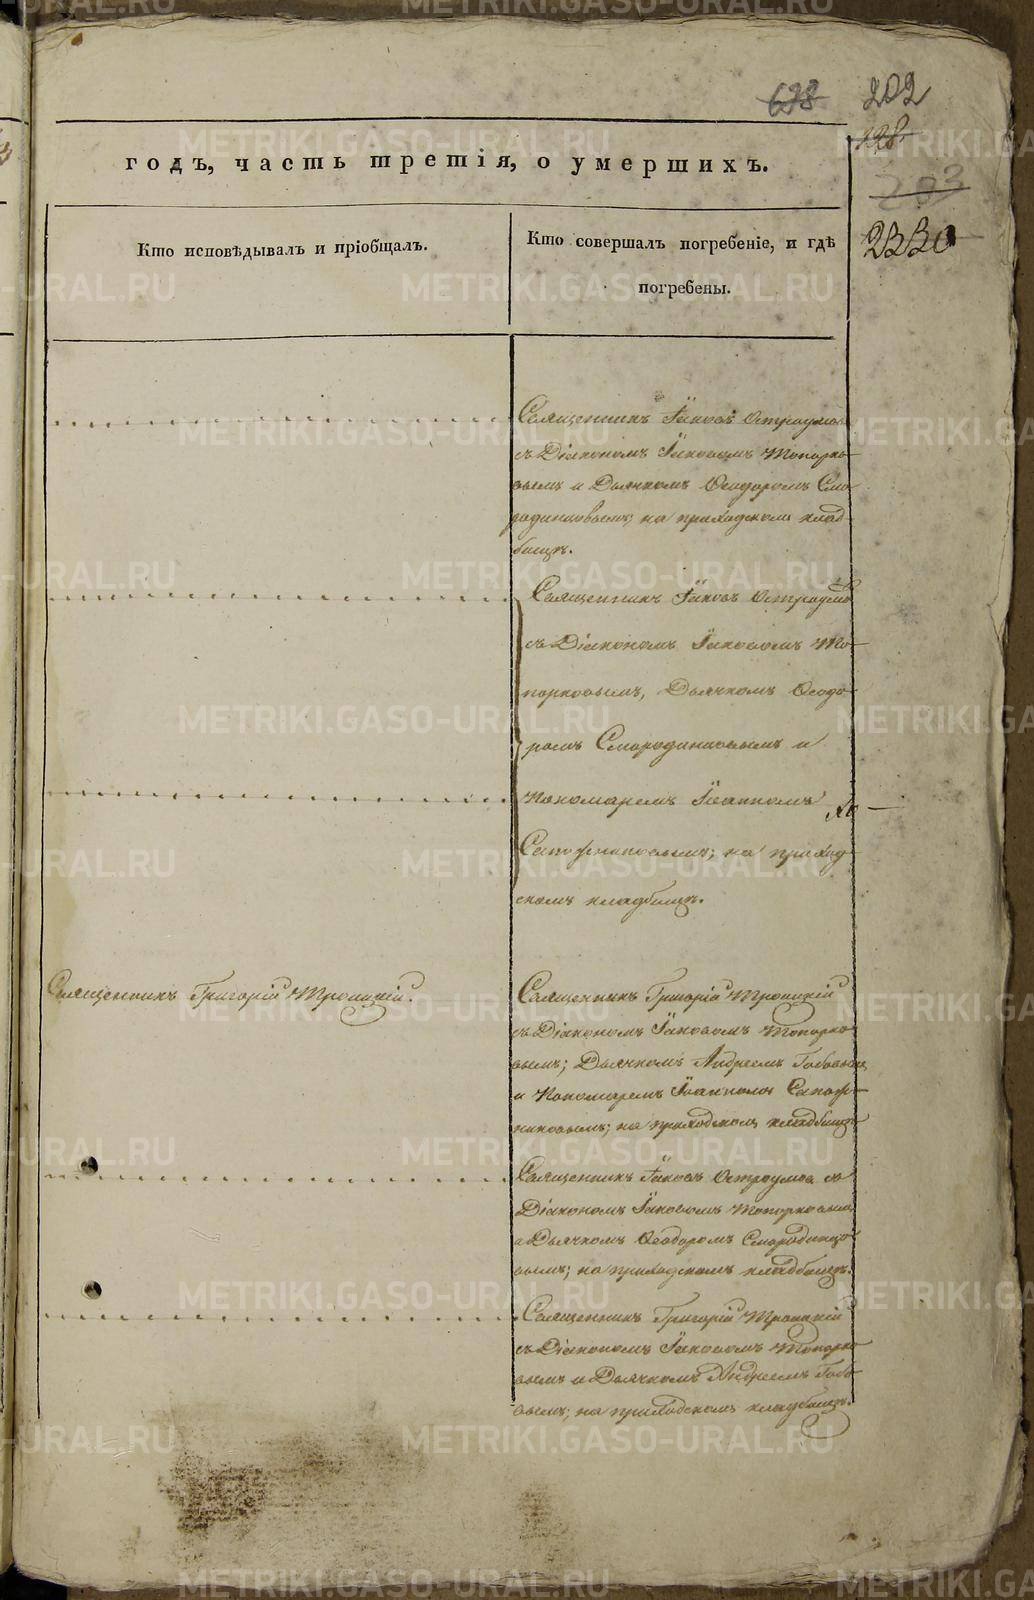 698 202
128
203
годъ, часть третія, о умершихъ.
2330
Кто исповѣдывалъ и пріобщалъ.
Кто совершалъ погребеніе, и гдѣ
погребены.
Священникъ Іаковъ Остроумов
съ Діакономъ Іаковомъ Топорко-
вымъ и Дьячкомъ Ѳеодоромъ Смо-
родинцовымъ; на приходскомъ клад-
бищѣ.
Священникъ Іаковъ Остроумов
съ Діакономъ Іаковомъ То-
порковымъ, Дьячкомъ Ѳеодо-
ромъ Смородинцовымъ и
Пономаремъ Іоанномъ
Сапожниковымъ; на приход-
скомъ кладбищѣ.
Священникъ Григорій Троицкій.
Священникъ Григорій Троицкій
съ Діакономъ Іаковомъ Топорко-
вымъ; Дьячкомъ Андреемъ
и Пономаремъ Іоанномъ Сапож-
никовымъ; на приходскомъ кладбищѣ
Священникъ Іаковъ Остроумов съ
Діакономъ Іаковомъ Топорковым
и Дьячкомъ Ѳеодоромъ Смородинцо-
вымъ; на приходскомъ кладбищѣ.
Священникъ Григорій Троицкій
съ Діакономъ Іаковомъ Топорко-
вымъ и Дьячкомъ Андреемъ
вымъ; на приходскомъ кладбищѣ.
METRIKI.GASO-URAL.RU